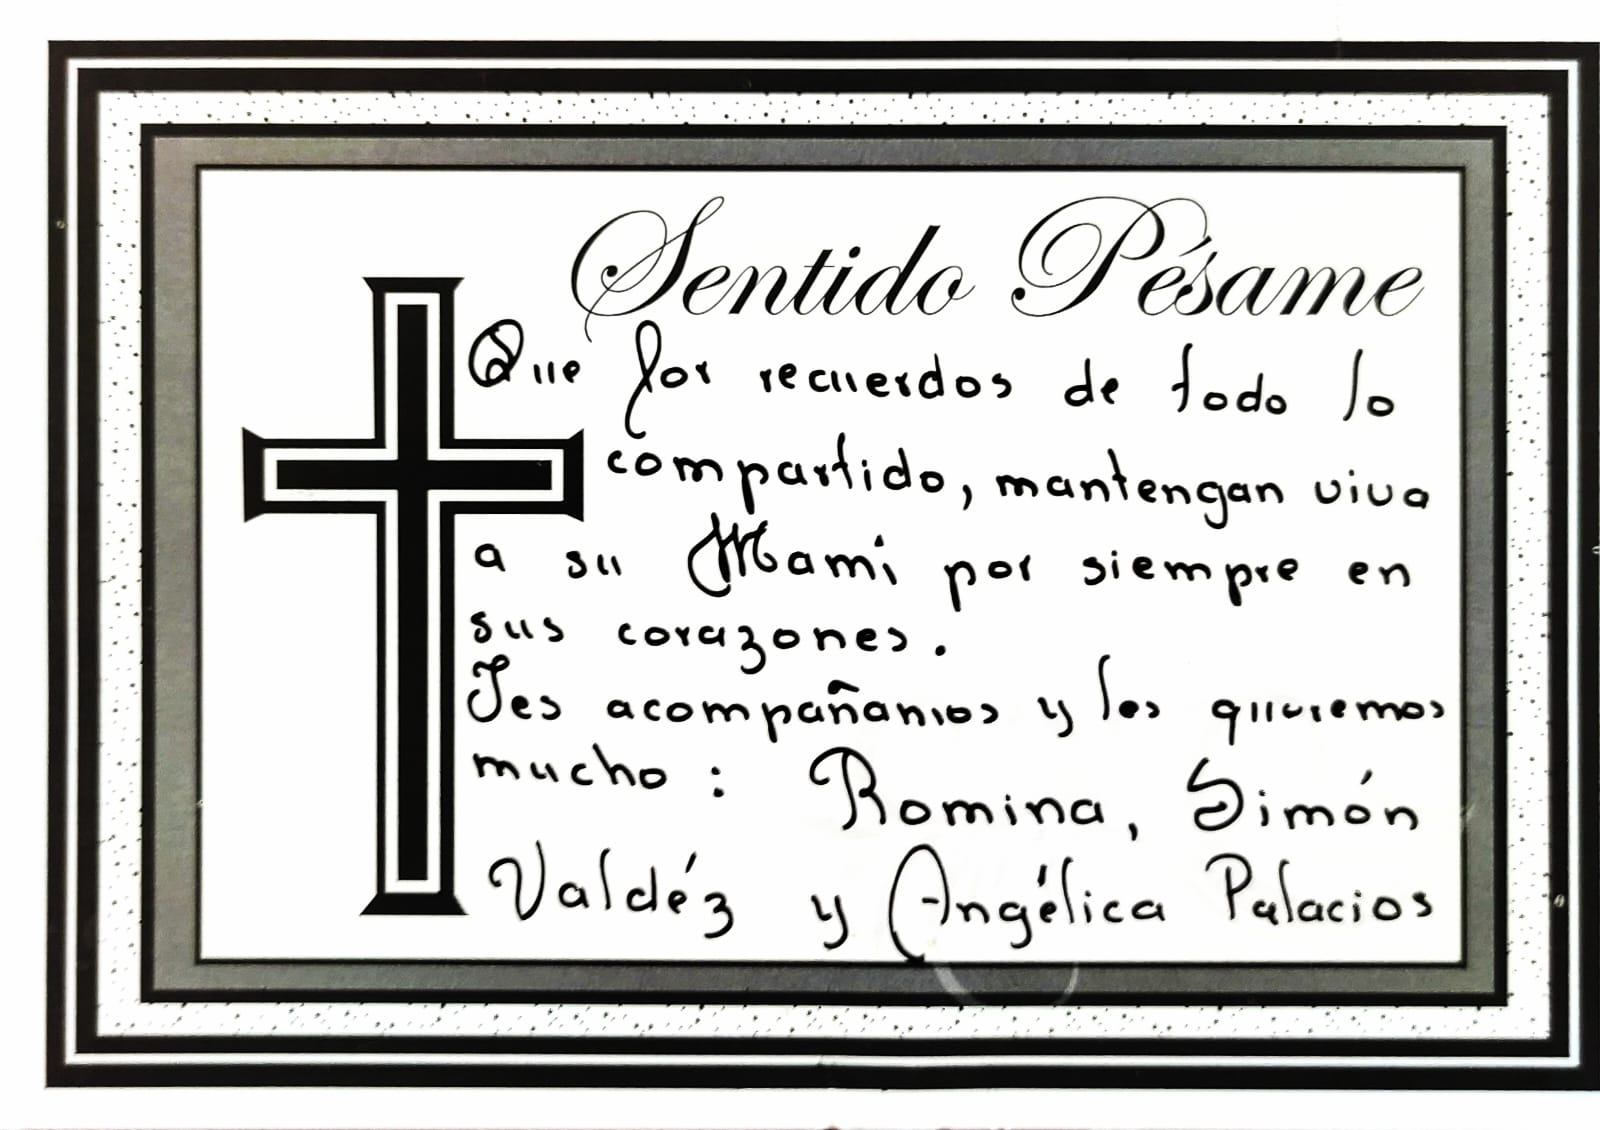 Sentido Pésame
Que los recuerdos de todo lo
compartido, mantengan viva
a su Mami por siempre en
sus corazones.
Les acompañamos y los queremos
mucho: Romina, Simón
Valdéz y Angélica Palacios